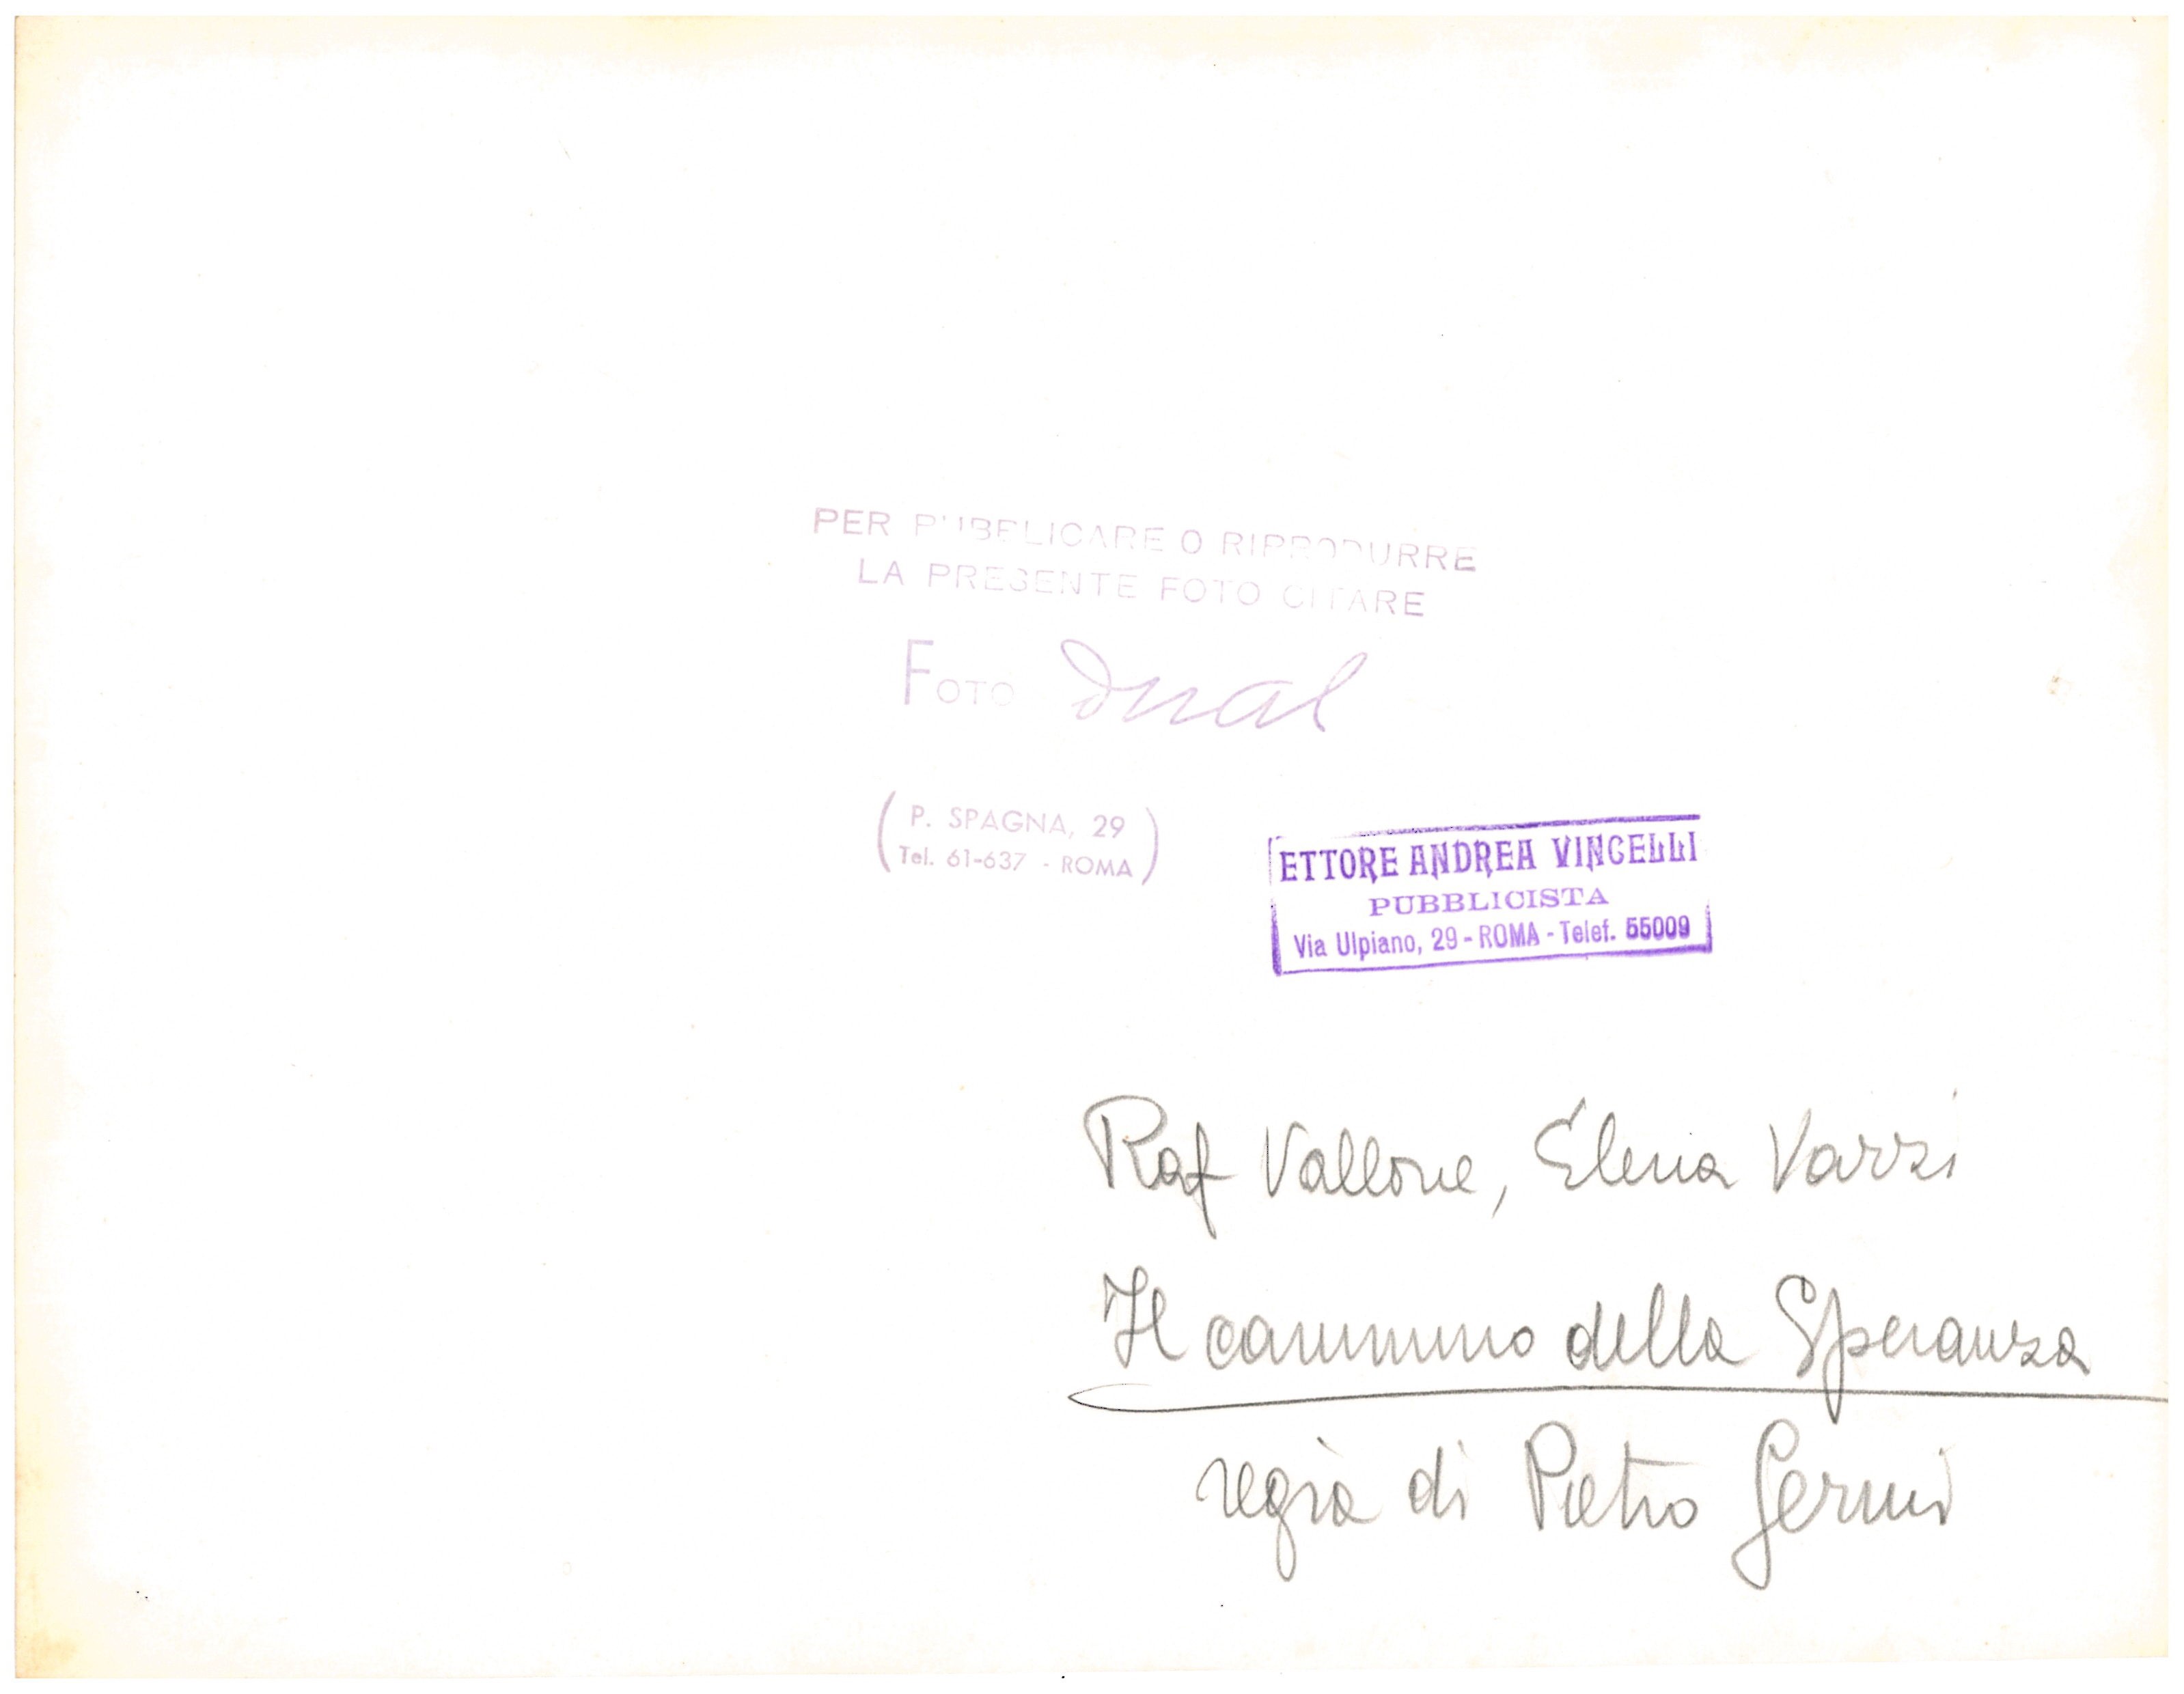 PER PUBBLICARE O RIPRODURRE
LA PRESENTE FOTO CITARE
FOTO Dual
(P. SPAGNA, 29
Tel. 61-637 - ROMA)
ETTORE ANDREA VINCELLI
PUBBLICISTA
Via Ulpiano, 29 - ROMA - Telef. 55009
Raf Vallone, Elena Varzi
Il cammino della Speranza
regia di Pietro Germi